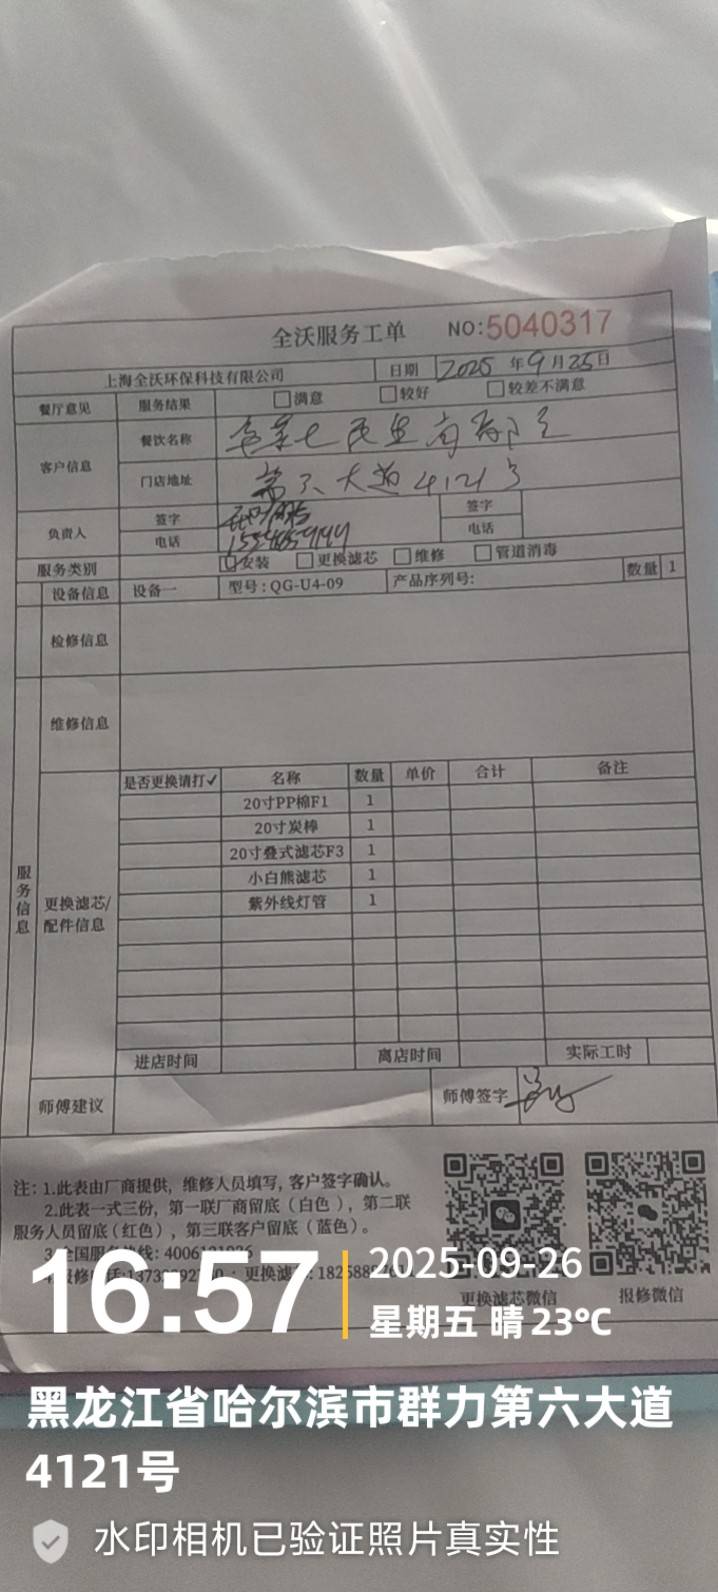 全沃服务工单 NO:5040317
上海全沃环保科技有限公司 日期 2025 年 9 月 25 日
餐厅意见 服务结果 满意 较好 较差不满意
客户信息 餐饮名称
门店地址 第六大道4121号
负责人 签字 签字
电话 电话
服务类别 安装 更换滤芯 维修 管道消毒
设备信息 设备一 型号:QG-U4-09 产品序列号: 数量 1
检修信息
维修信息
服务信息
更换滤芯/配件信息
是否更换请打✓ 名称 数量 单价 合计 备注
20寸PP棉F1 1
20寸炭棒 1
20寸叠式滤芯F3 1
小白熊滤芯 1
紫外线灯管 1
进店时间 离店时间 实际工时
师傅建议 师傅签字
注: 1.此表由厂商提供, 维修人员填写, 客户签字确认。
2.此表一式三份, 第一联厂商留底(白色), 第二联
服务人员留底(红色), 第三联客户留底(蓝色)。
更换滤芯微信 报修微信
16:57
2025-09-26
星期五 晴 23℃
黑龙江省哈尔滨市群力第六大道
4121号
水印相机已验证照片真实性